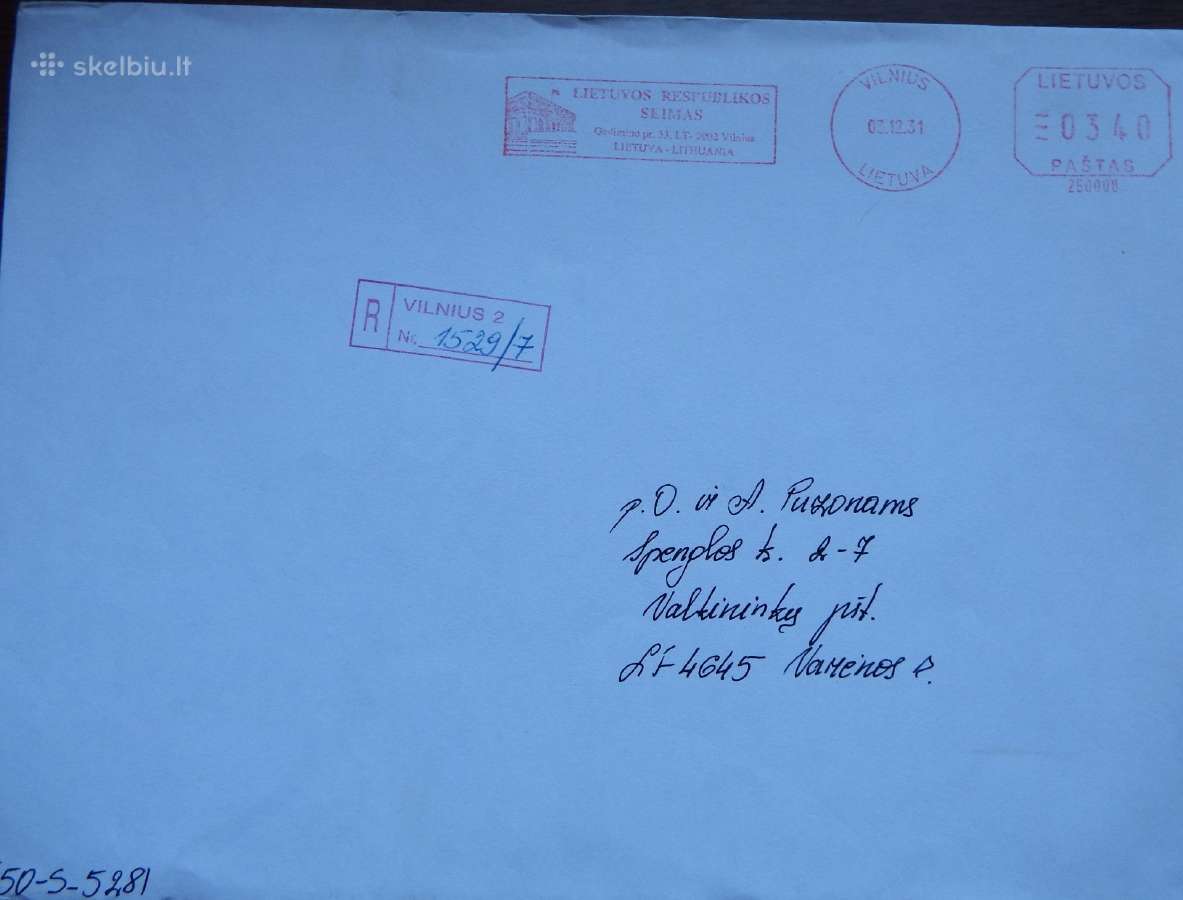 skelbiu.lt
LIETUVOS RESPUBLIKOS
SEIMAS
Gedimino pr. 53, LT- 2002 Vilnius
LIETUVA - LITHUANIA
VILNIUS
03.12.31
LIETUVA
LIETUVOS
0340
PAŠTAS
R
VILNIUS 2
Nr. 1529/7
p. O. ir A. Puzonams
Spenglos k. 2-7
Valkininkų pšt.
LT-4645 Varėnos r.
50-S-5281